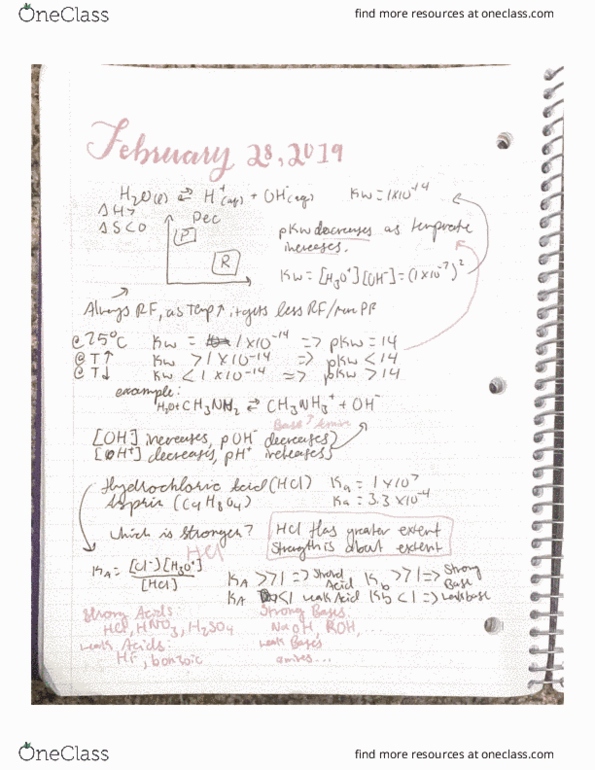 OneClass
find more resources at oneclass.com
February 28, 2019
H₂O(l) ⇌ H⁺(aq) + OH⁻(aq) Kw = 1x10⁻¹⁴
ΔH>
ΔS<0
Dec
P
R
pKw decreases as
increases.
Kw = [H₃O⁺][OH⁻] = (1x10⁻⁷)²
Always RF, as Temp ↑, it gets less RF/ PF
@25°C Kw = 1x10⁻¹⁴ => pKw = 14
@T↑ Kw > 1x10⁻¹⁴ => pKw < 14
@T↓ Kw < 1x10⁻¹⁴ => pKw > 14
example:
H₂O + CH₃NH₂ ⇌ CH₃NH₃⁺ + OH⁻
Base?
[OH] increases, pOH⁻ decreases
[H⁺] decreases, pH⁺ increases
Hydrochloric Acid (HCl) Ka = 1x10⁷
(C₉H₈O₄) Ka = 3.3x10⁻⁴
Which is stronger?
HCl
HCl has greater extent
Strength is about extent
KA = [Cl⁻][H₃O⁺]
[HCl]
KA >>1 => Strong Acid Kb >>1 => Strong Base
KA <1 weak Acid Kb <1 => weak base
Strong Acids:
HCl, HNO₃, H₂SO₄
weak Acids:
HF,
Strong Bases:
NaOH, ROH, ...
weak Bases
amines...
OneClass
find more resources at oneclass.com